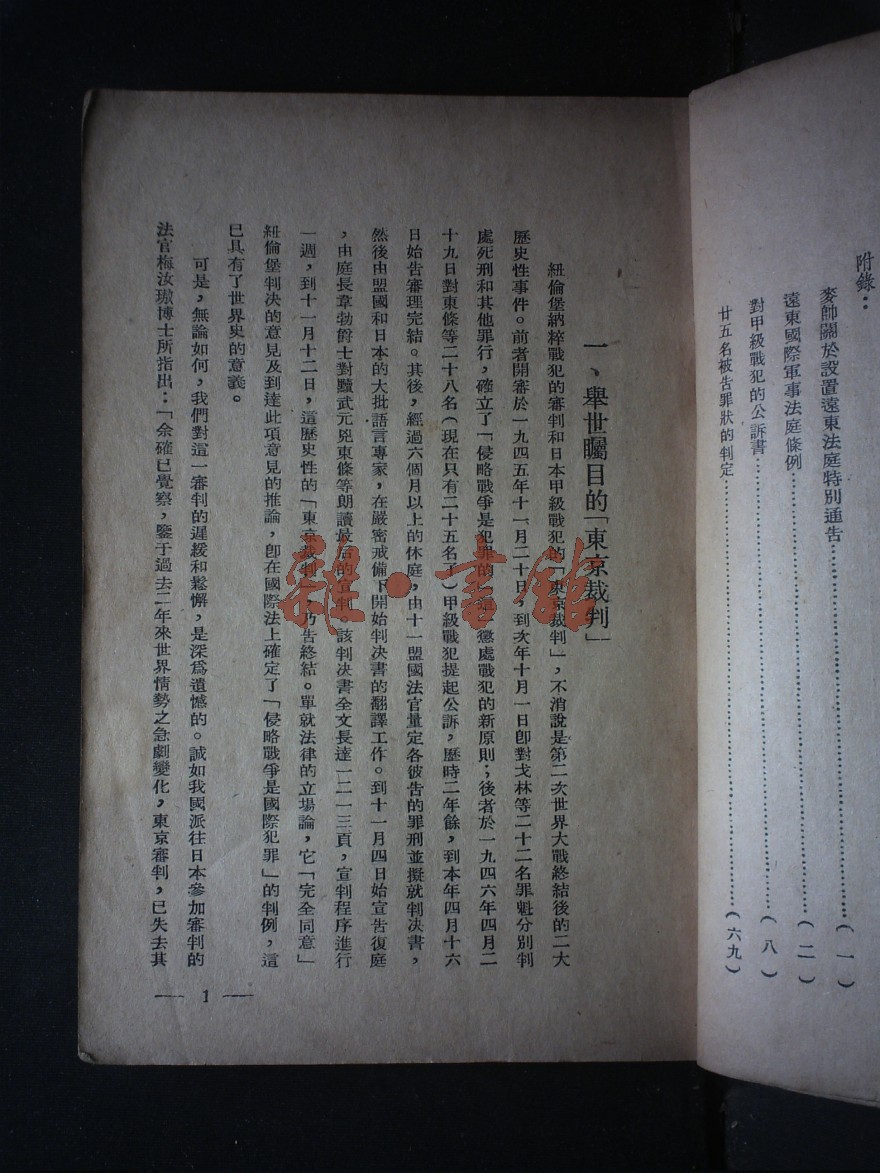 附錄：
麥帥關於設置遠東法庭特別通告……（一）
遠東國際軍事法庭條例……（二）
對甲級戰犯的公訴書……（八）
廿五名被告罪狀的判定……（六九）
一、舉世矚目的「東京裁判」
紐倫堡納粹戰犯的審判和日本甲級戰犯的「東京裁判」，不消說是第二次世界大戰終結後的二大
歷史性事件。前者開審於一九四五年十一月二十日，到次年十月一日卽對戈林等二十二名罪魁分別判
處死刑和其他罪行，確立了「侵略戰爭是犯罪的」這一懲處戰犯的新原則；後者於一九四六年四月二
十九日對東條等二十八名（現在只有二十五名了）甲級戰犯提起公訴，歷時二年餘，到本年四月十六
日始告審理完結。其後，經過六個月以上的休庭，由十一盟國法官量定各彼告的罪刑並擬就判决書，
然後由盟國和日本的大批語言專家，在嚴密戒備下開始判决書的翻譯工作。到十一月四日始宣告復庭
，由庭長韋勃爵士對黷武元兇東條等朗讀最后的宣判。該判决書全文長達一二一三頁，宣判程序進行
一週，到十一月十二日，這歷史性的「東京裁判」，乃告終結。單就法律的立場論，它「完全同意」
紐倫堡判决的意見及到達此項意見的推論，卽在國際法上確定了「侵略戰爭是國際犯罪」的判例，這
已具有了世界史的意義。
可是，無論如何，我們對這一審判的遲緩和鬆懈，是深爲遺憾的。誠如我國派往日本參加審判的
法官梅汝璈博士所指出：「余確已覺察，鑒于過去二年來世界情勢之急劇變化，東京審判，已失去其
— 1 —
雜·書館